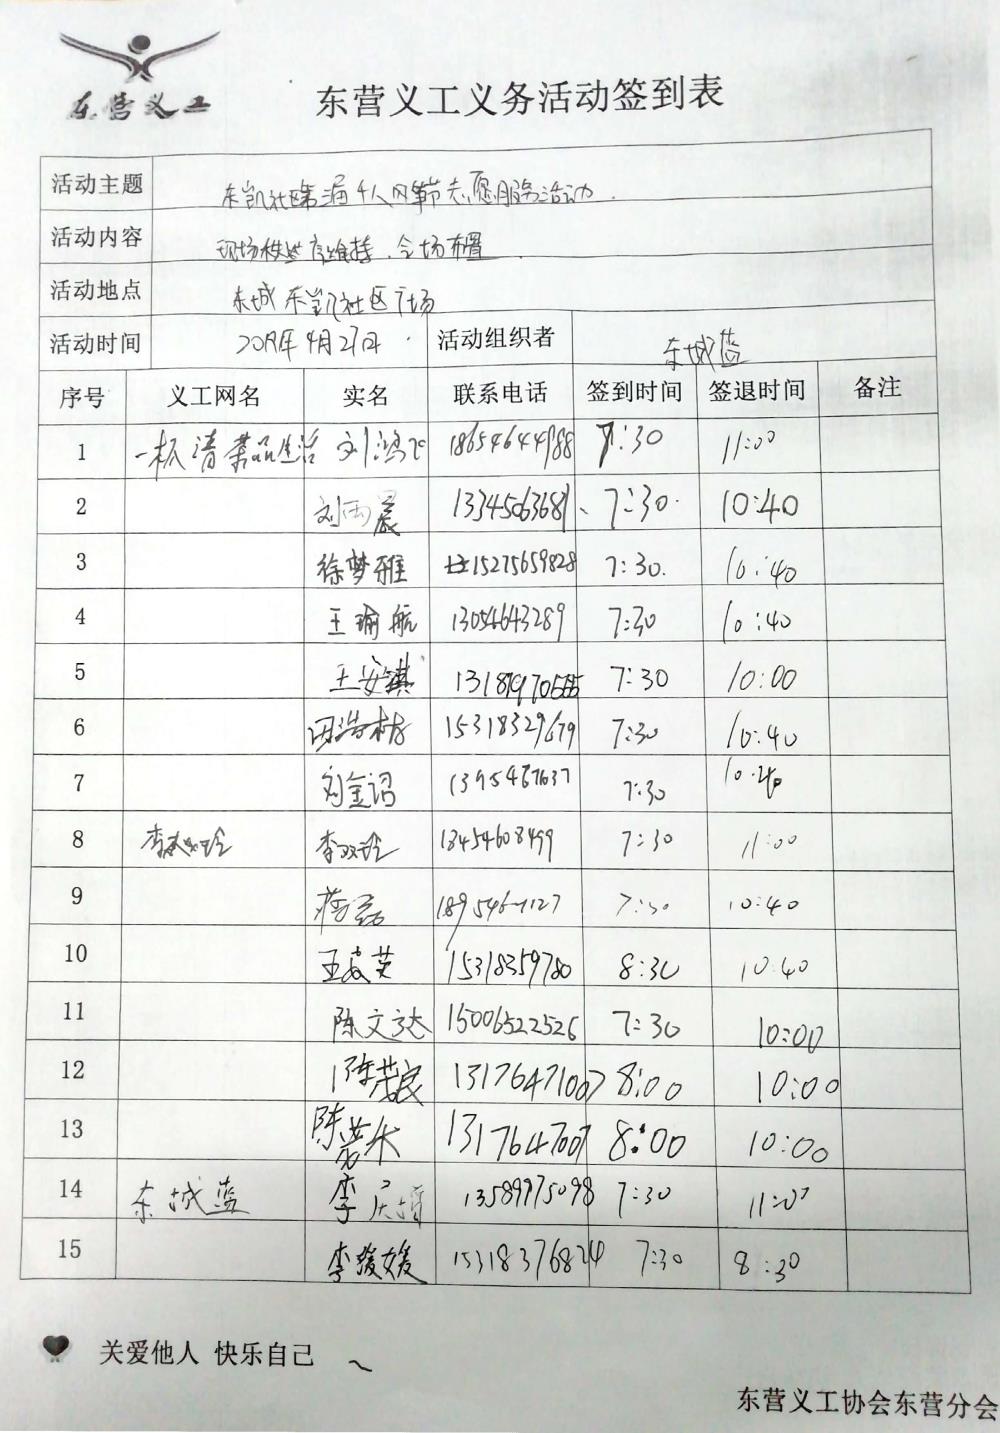 东营义工
东营义工义务活动签到表
活动主题 东凯社区第三届千人风筝节志愿服务活动.
活动内容 现场秩序维持、会场布置
活动地点 东城东凯社区广场
活动时间 2019年4月21日 活动组织者 东城蓝
序号 义工网名 实名 联系电话 签到时间 签退时间 备注
1 一杯清茶品生活 刘鸿飞 18654644988 7:30 11:00
2 刘雨晨 13345063681 7:30 10:40
3 徐梦雅 15275659828 7:30 10:40
4 王瑜航 13054643289 7:30 10:40
5 王安镇 7:30 10:00
6 15318329679 7:30 10:40
7 刘金诏 7:30 10:40
8 李双玲 13454608499 7:30 11:00
9 蒋磊 7:30 10:40
10 王英 15318359780 8:30 10:40
11 陈文达 15006522526 7:30 10:00
12 陈 13176471007 8:00 10:00
13 陈 8:00 10:00
14 东城蓝 李 13589975098 7:30 11:00
15 李媛媛 15318376824 7:30 8:30
关爱他人 快乐自己
东营义工协会东营分会